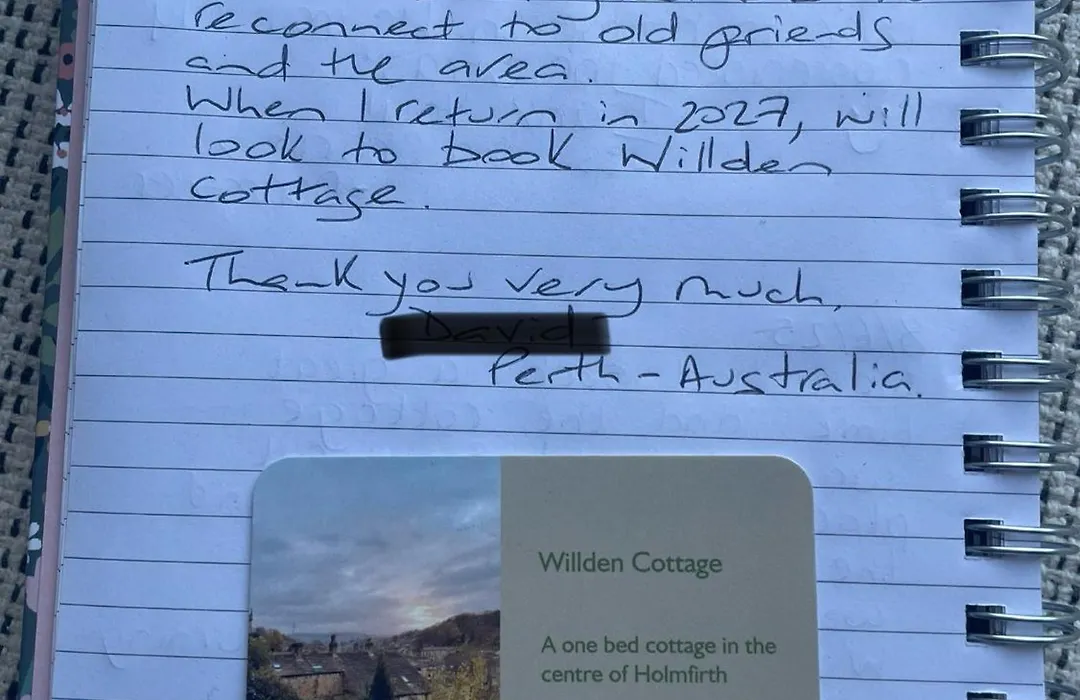 reconnect to old friends
and the area.
When I return in 2027, will
look to book Willden
cottage.
Thank you very much,
David
Perth - Australia.
Willden Cottage
A one bed cottage in the
centre of Holmfirth